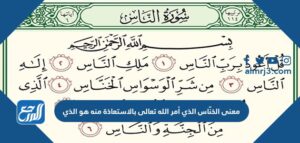 سُورَةُ النَّاسِ
بِسْمِ اللَّهِ الرَّحْمَنِ الرَّحِيمِ
قُلْ أَعُوذُ بِرَبِّ النَّاسِ ١ مَلِكِ النَّاسِ ٢ إِلَهِ
النَّاسِ ٣ مِن شَرِّ الْوَسْوَاسِ الْخَنَّاسِ ٤ الَّذِى
معنى الخنّاس الذي أمر الله تعالى بالاستعاذة منه هو الذي
مِنَ الْجِنَّةِ وَالنَّاسِ ٦
almrj3.com
المرجع